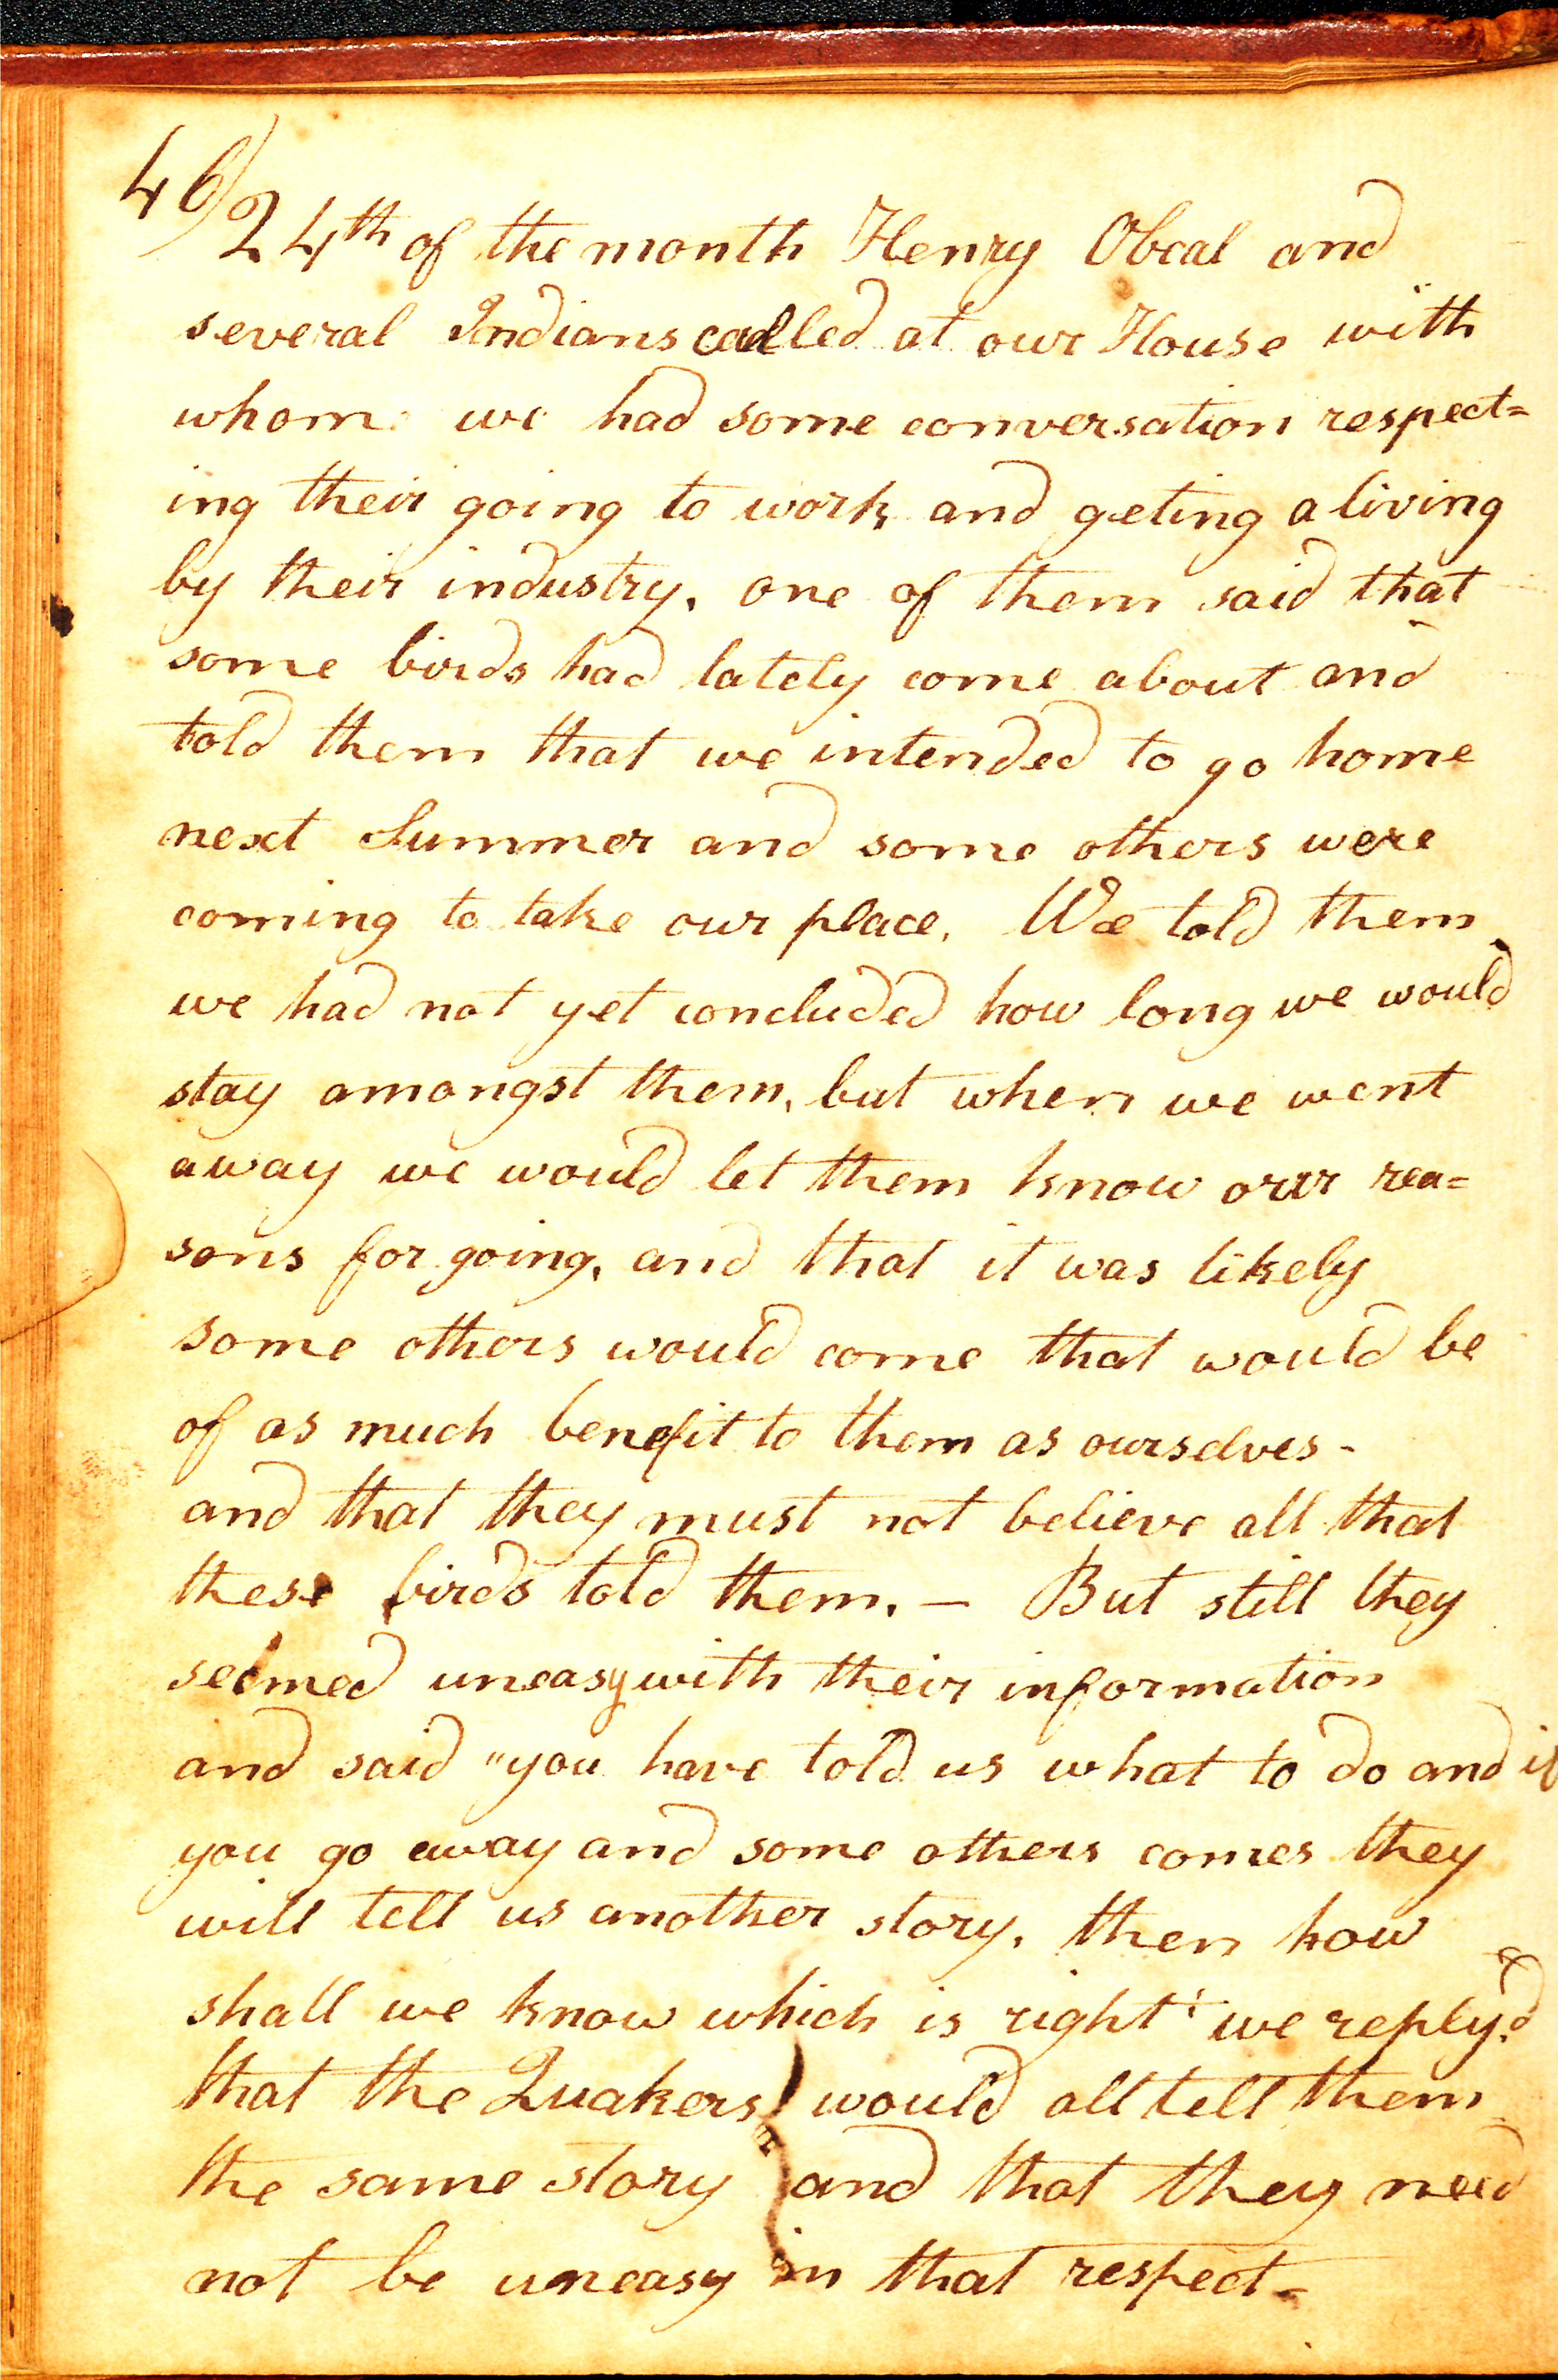 46)
24th of the month Henry Obeal and
several Indians called at our House with
whom we had some conversation respect=
ing their going to work and geting a living
by their industry, one of them said that
some birds had lately come about and
told them that we intended to go home
next Summer and some others were
coming to take our place. We told them
we had not yet concluded how long we would
stay amongst them, but when we went
away we would let them know our rea=
sons for going, and that it was likely
some others would come that would be
of as much benefit to them as ourselves -
and that they must not believe all that
these birds told them. — But still they
seemed uneasy with their information
and said "you have told us what to do and if
you go away and some others comes they
will tell us another story, then how
shall we know which is right" we reply'd
that the Quakers would all tell them
the same story and that they need
not be uneasy in that respect -